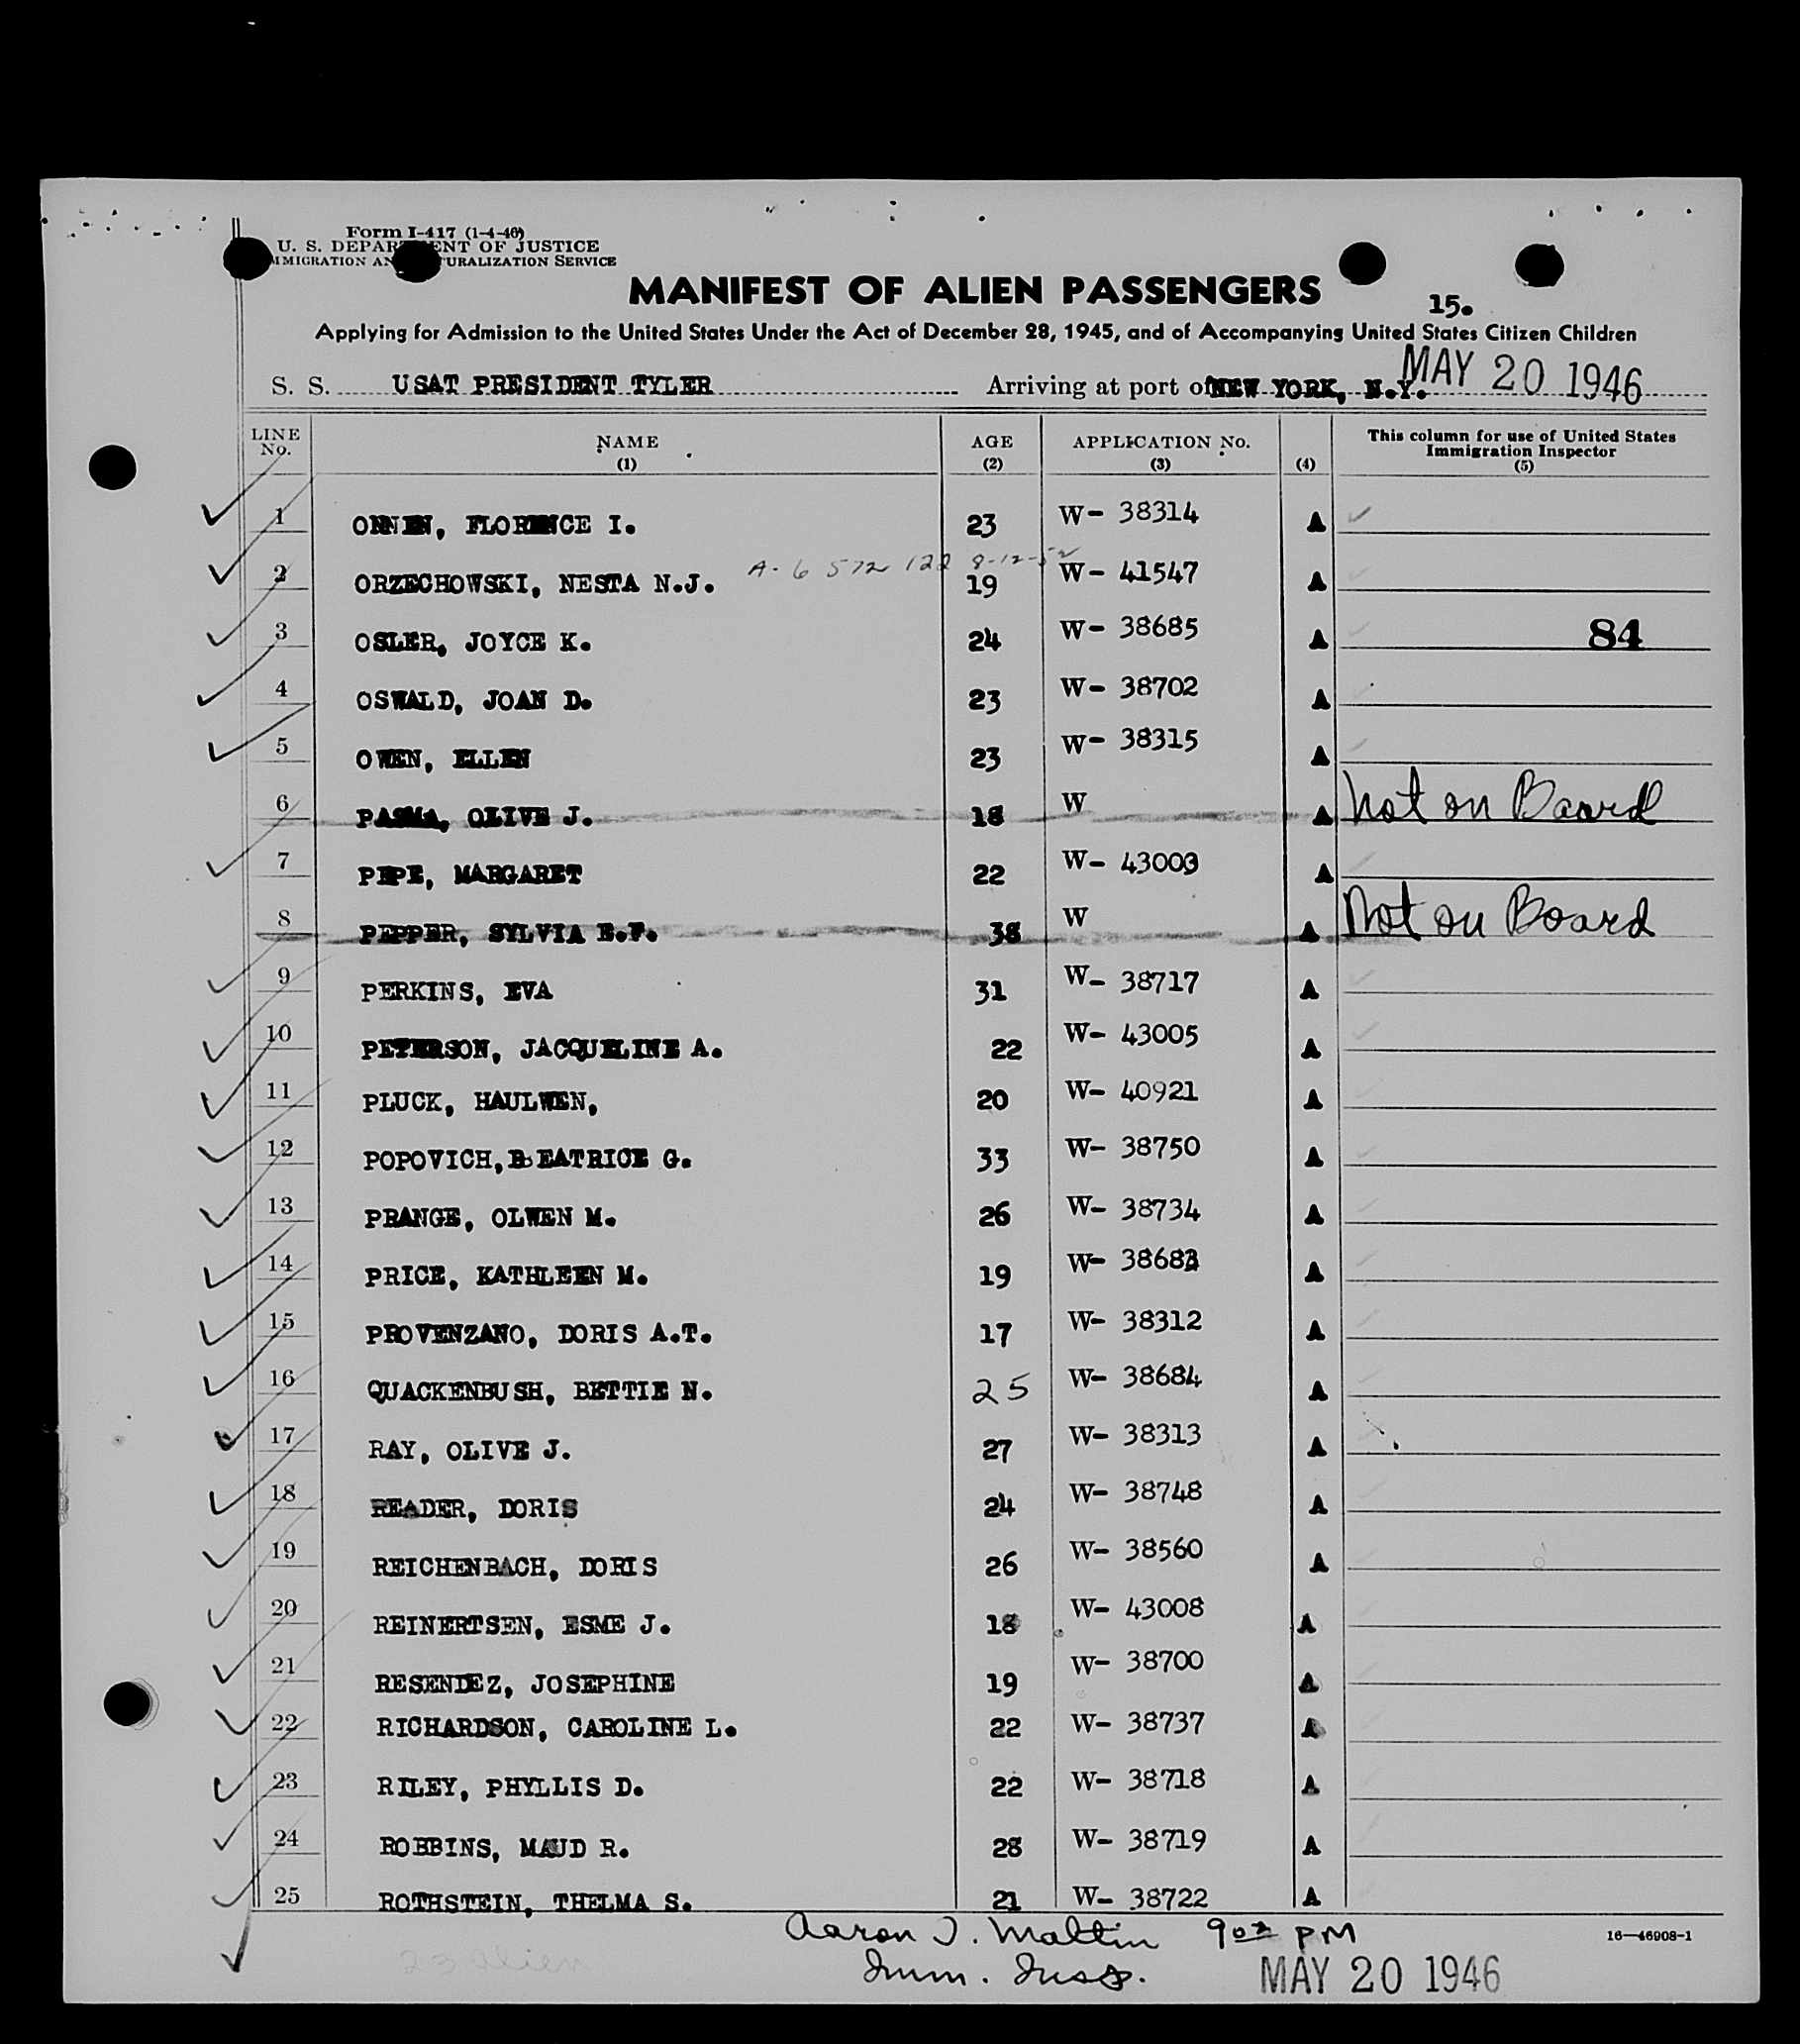 Form I-417 (1-4-46)
U. S. DEPARTMENT OF JUSTICE
IMMIGRATION AND NATURALIZATION SERVICE
MANIFEST OF ALIEN PASSENGERS
15.
Applying for Admission to the United States Under the Act of December 28, 1945, and of Accompanying United States Citizen Children
S. S. USAT PRESIDENT TYLER Arriving at port of NEW YORK, N.Y. MAY 20 1946
LINE No. NAME (1) AGE (2) APPLICATION No. (3) (4) This column for use of United States Immigration Inspector (5)
1 ONNEN, FLORENCE I. 23 W- 38314 A
A-6 572 122 8-12-52
2 ORZECHOWSKI, NESTA N.J. 19 W- 41547 A
3 OSLER, JOYCE K. 24 W- 38685 A 84
4 OSWALD, JOAN D. 23 W- 38702 A
5 OWEN, ELLEN 23 W- 38315 A
6 PASMA, OLIVE J. 18 W A Not on Board
7 PEPE, MARGARET 22 W- 43003 A
8 PEPPER, SYLVIA E.F. 38 W A Not on Board
9 PERKINS, EVA 31 W- 38717 A
10 PETERSON, JACQUELINE A. 22 W- 43005 A
11 PLUCK, HAULWEN, 20 W- 40921 A
12 POPOVICH, BEATRICE G. 33 W- 38750 A
13 PRANGE, OLWEN M. 26 W- 38734 A
14 PRICE, KATHLEEN M. 19 W- 38683 A
15 PROVENZANO, DORIS A.T. 17 W- 38312 A
16 QUACKENBUSH, BETTIE N. 25 W- 38684 A
17 RAY, OLIVE J. 27 W- 38313 A
18 READER, DORIS 24 W- 38748 A
19 REICHENBACH, DORIS 26 W- 38560 A
20 REINERTSEN, ESME J. 18 W- 43008 A
21 RESENDEZ, JOSEPHINE 19 W- 38700 A
22 RICHARDSON, CAROLINE L. 22 W- 38737 A
23 RILEY, PHYLLIS D. 22 W- 38718 A
24 ROBBINS, MAUD R. 28 W- 38719 A
25 ROTHSTEIN, THELMA S. 21 W- 38722 A
Aaron J. Maltin 9 PM 16—46908-1
23 alien Imm. Insp. MAY 20 1946